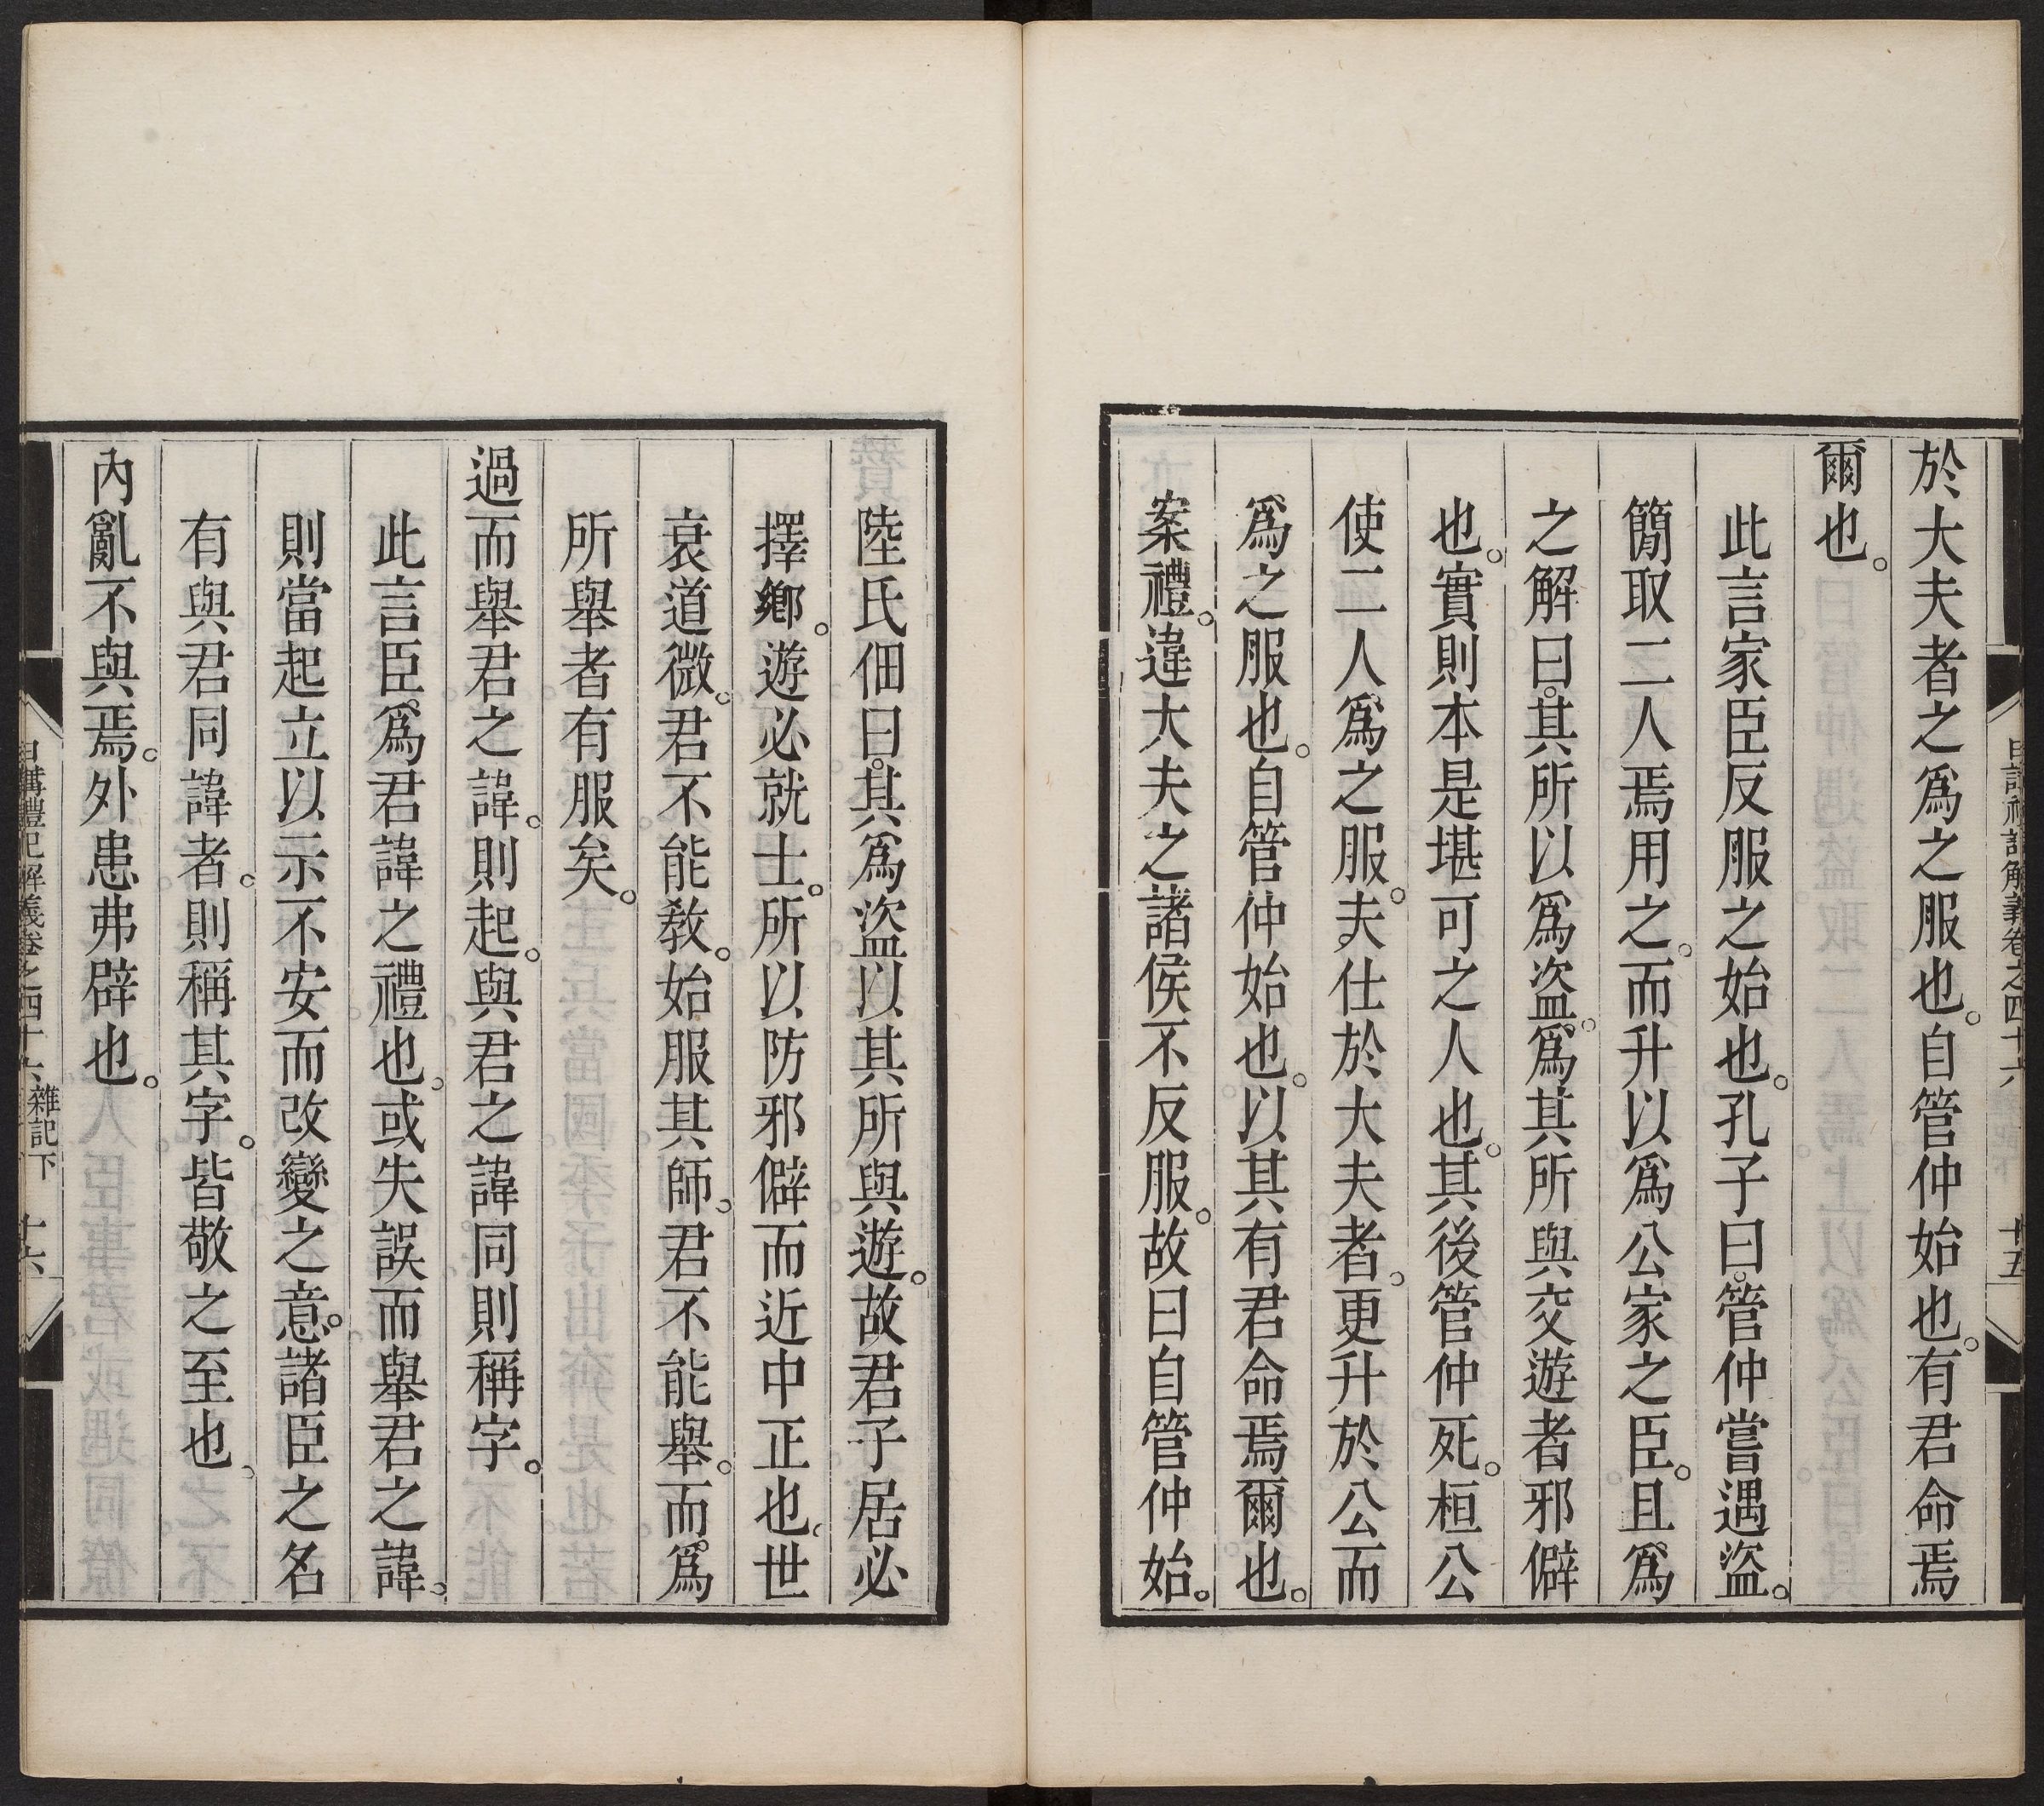 於大夫者之爲之服也。自管仲始也。有君命焉
爾也。
此言家臣反服之始也。孔子曰。管仲嘗遇盜。
簡取二人焉用之。而升以爲公家之臣。且爲
之解曰。其所以爲盜。爲其所與交遊者邪僻
也。實則本是堪可之人也。其後管仲死。桓公
使二人爲之服。夫仕於大夫者。更升於公而
爲之服也。自管仲始也。以其有君命焉爾也。
案禮。違大夫之諸侯不反服。故曰自管仲始。
日講禮記解義卷之四十六 十五
陸氏佃曰。其爲盜以其所與遊。故君子居必
擇鄉。遊必就士。所以防邪僻而近中正也。世
衰道微。君不能教。始服其師。君不能舉。而爲
所舉者有服矣。
過而舉君之諱。則起。與君之諱同則稱字。
此言臣爲君諱之禮也。或失誤而舉君之諱。
則當起立以示不安而改變之意。諸臣之名
有與君同諱者。則稱其字。皆敬之至也。
內亂不與焉。外患弗辟也。
日講禮記解義卷之四十六 雜記下 十六